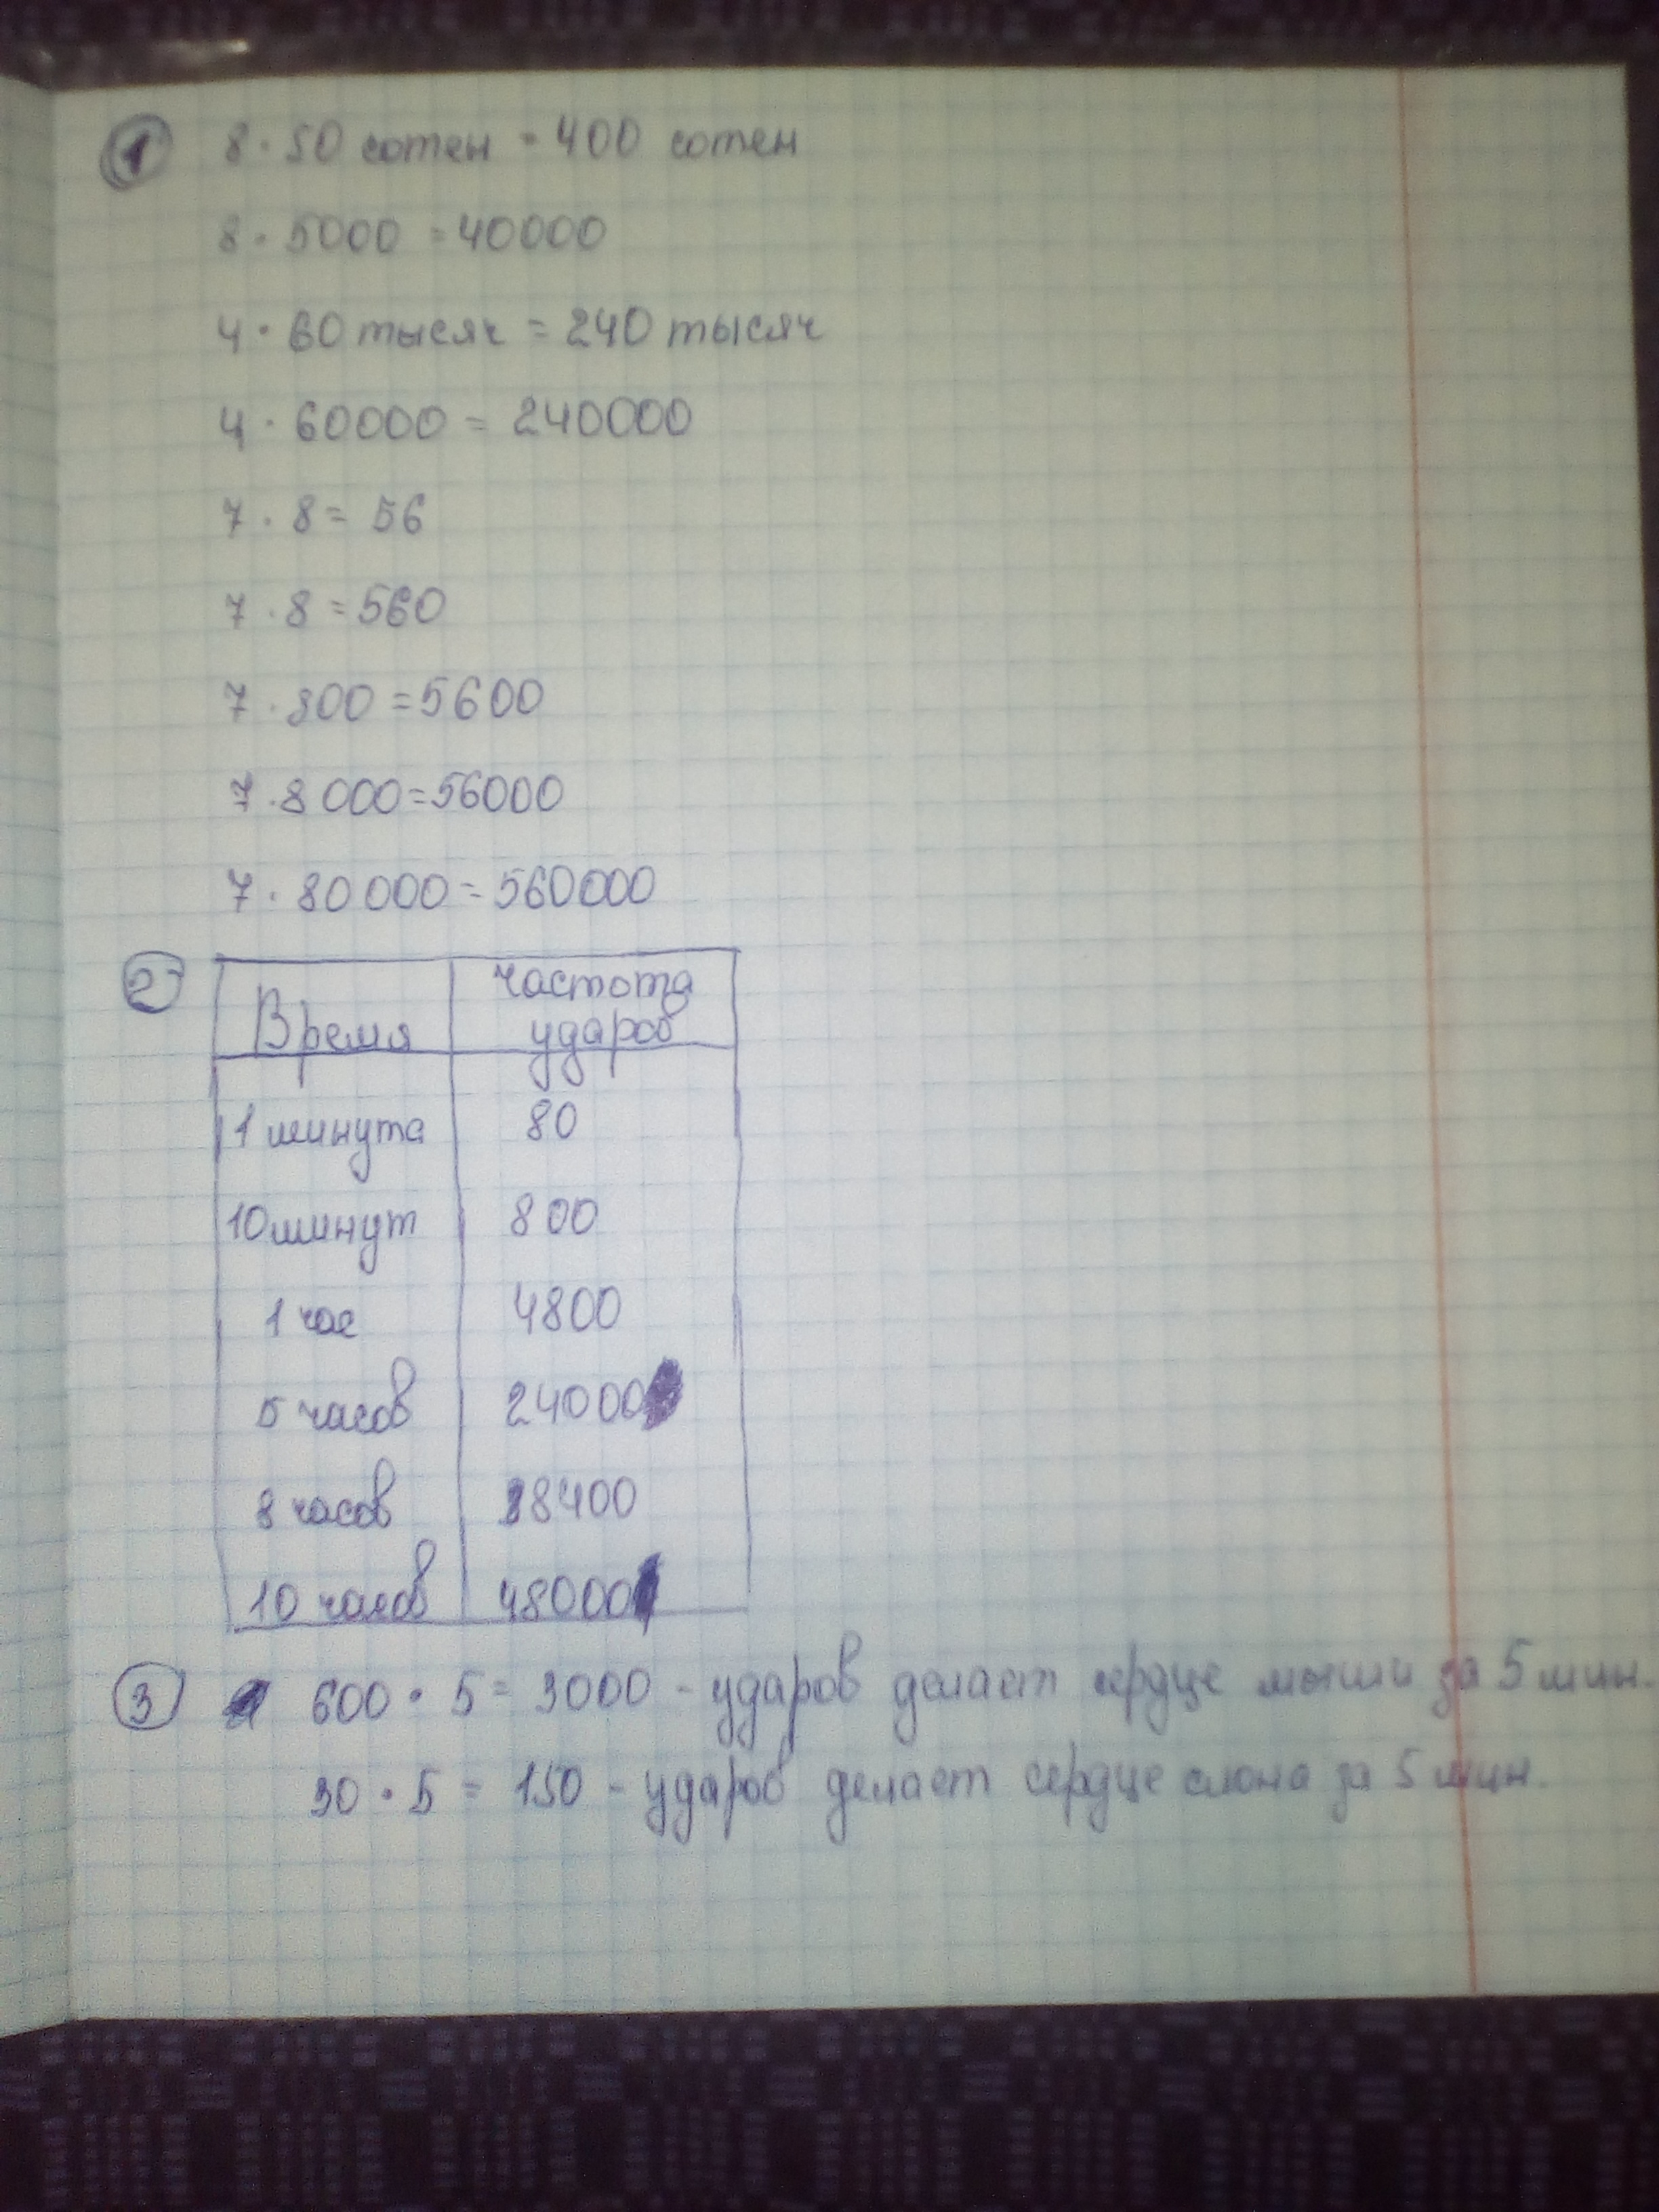 1 8 · 50 сотен = 400 сотен
8 · 5000 = 40000
4 · 60 тысяч = 240 тысяч
4 · 60000 = 240000
7 · 8 = 56
7 · 8 = 560
7 · 800 = 5600
7 · 8 000 = 56000
7 · 80 000 = 560000
2 Время частота ударов
1 минута 80
10 минут 800
1 час 4800
5 часов 24000
8 часов 38400
10 часов 48000
3 600 · 5 = 3000 - ударов делает сердце мыши за 5 мин.
30 · 5 = 150 - ударов делает сердце слона за 5 мин.